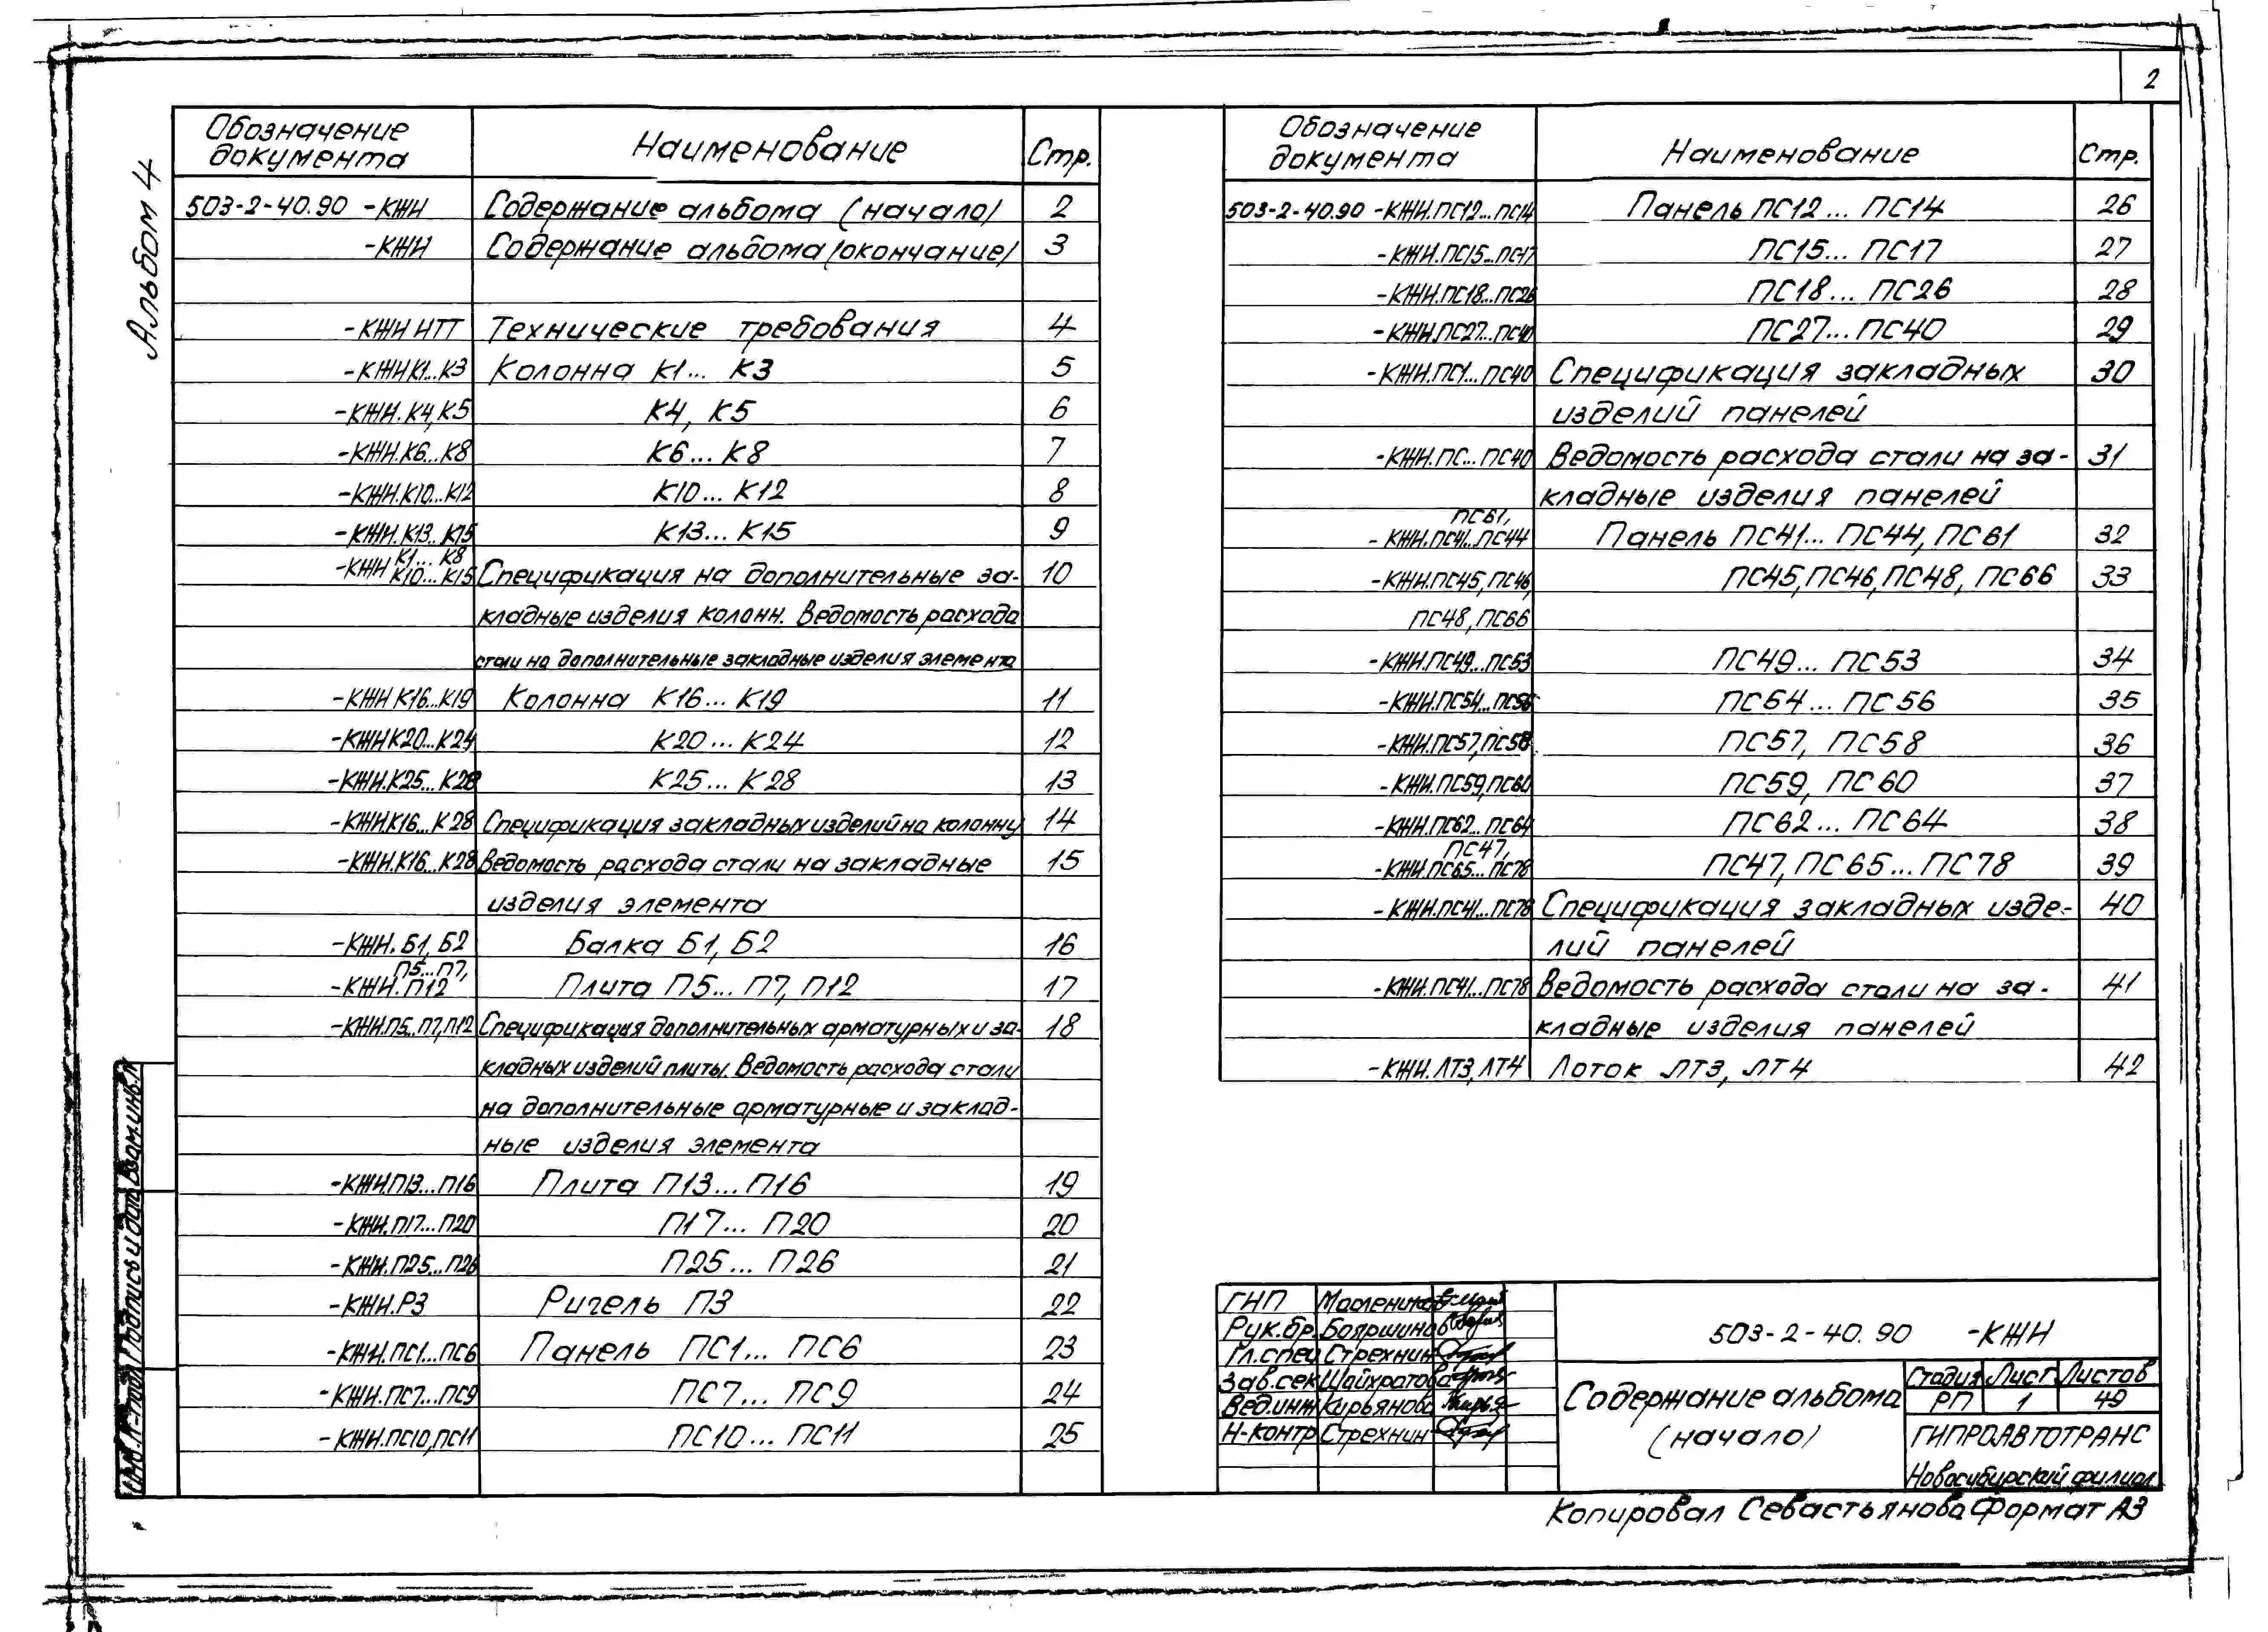 2
Альбом 4
Обозначение документа Наименование Стр.
503-2-40.90 -КЖИ Содержание альбома (начало) 2
-КЖИ Содержание альбома (окончание) 3
-КЖИ ИТТ Технические требования 4
-КЖИ К1... К3 Колонна К1... К3 5
-КЖИ. К4, К5 К4, К5 6
-КЖИ.К6...К8 К6... К8 7
-КЖИ.К10...К12 К10... К12 8
-КЖИ.К13...К15 К13... К15 9
-КЖИ К1... К8 К10... К15 Спецификация на дополнительные за- 10
кладные изделия колонн. Ведомость расхода
стали на дополнительные закладные изделия элемента
-КЖИ К16...К19 Колонна К16... К19 11
-КЖИ К20...К24 К20... К24 12
-КЖИ.К25...К28 К25... К28 13
-КЖИ.К16...К28 Спецификация закладных изделий на колонну 14
-КЖИ.К16...К28 Ведомость расхода стали на закладные 15
изделия элемента
-КЖИ. Б1, Б2 Балка Б1, Б2 16
-КЖИ. П5...П7, П12 Плита П5... П7, П12 17
-КЖИ.П5...П7,П12 Спецификация дополнительных арматурных и за- 18
кладных изделий плиты. Ведомость расхода стали
на дополнительные арматурные и заклад-
ные изделия элемента
-КЖИ П13...П16 Плита П13... П16 19
-КЖИ.П17...П20 П17... П20 20
-КЖИ.П25...П26 П25... П26 21
-КЖИ.Р3 Ригель П3 22
-КЖИ.ПС1...ПС6 Панель ПС1... ПС6 23
-КЖИ.ПС7...ПС9 ПС7... ПС9 24
-КЖИ.ПС10,ПС11 ПС10... ПС11 25
Обозначение документа Наименование Стр.
503-2-40.90 -КЖИ.ПС12...ПС14 Панель ПС12... ПС14 26
-КЖИ.ПС15...ПС17 ПС15... ПС17 27
-КЖИ.ПС18...ПС26 ПС18... ПС26 28
-КЖИ.ПС27...ПС40 ПС27... ПС40 29
-КЖИ.ПС1...ПС40 Спецификация закладных 30
изделий панелей
-КЖИ.ПС...ПС40 Ведомость расхода стали на за- 31
кладные изделия панелей
-КЖИ.ПС41...ПС44 ПС61, Панель ПС41... ПС44, ПС61 32
-КЖИ.ПС45, ПС46, ПС45, ПС46, ПС48, ПС66 33
ПС48, ПС66
-КЖИ.ПС49...ПС53 ПС49... ПС53 34
-КЖИ.ПС54...ПС56 ПС54... ПС56 35
-КЖИ.ПС57,ПС58 ПС57, ПС58 36
-КЖИ.ПС59,ПС60 ПС59, ПС60 37
-КЖИ.ПС62...ПС64 ПС62... ПС64 38
-КЖИ.ПС47, ПС65...ПС78 ПС47, ПС65... ПС78 39
-КЖИ.ПС41...ПС78 Спецификация закладных изде- 40
лий панелей
-КЖИ.ПС41...ПС78 Ведомость расхода стали на за- 41
кладные изделия панелей
-КЖИ.ЛТ3, ЛТ4 Лоток ЛТ3, ЛТ4 42
Инв.№подл. Подпись и дата Взам.инв.№
ГИП Масленников
Рук.бр. Бояршинов
Гл.спец Стрехнин
Зав.сек Шайхратова
Вед.инж Кирьянова
Н-контр Стрехнин
503-2-40.90 -КЖИ
Содержание альбома
(начало)
Стадия Лист Листов
РП 1 49
ГИПРОАВТОТРАНС
Новосибирский филиал
Копировал Севастьянова Формат А3